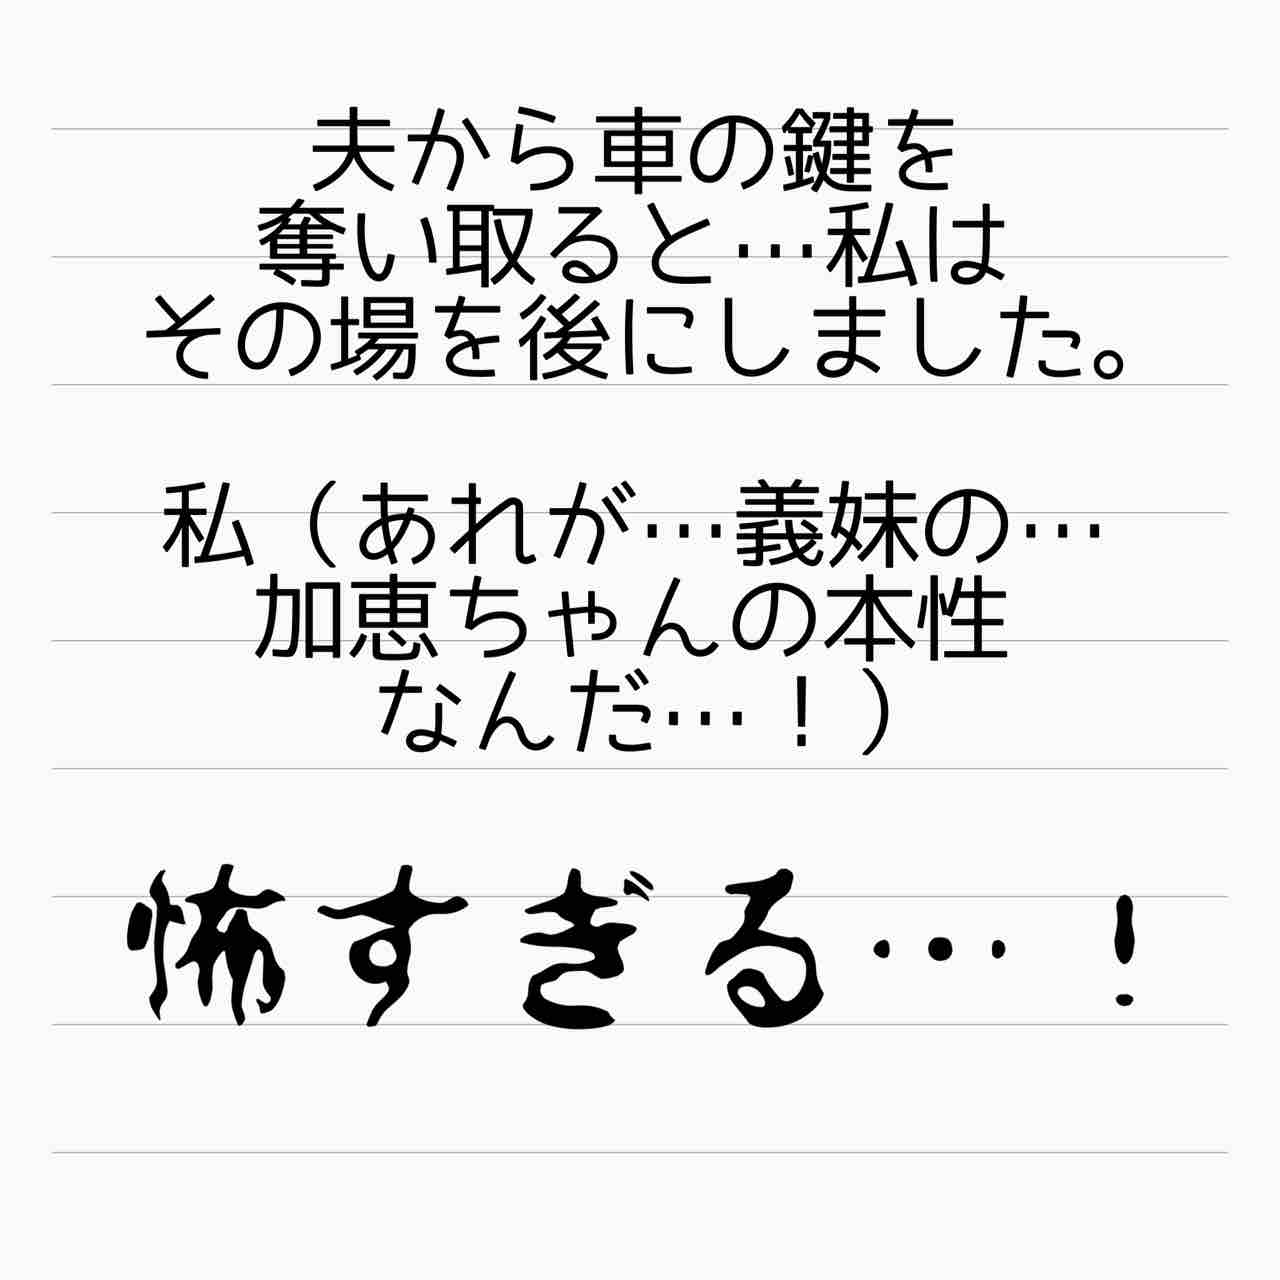 夫から車の鍵を
奪い取ると…私は
その場を後にしました。
私（あれが…義妹の…
加恵ちゃんの本性
なんだ…！）
怖すぎる…！